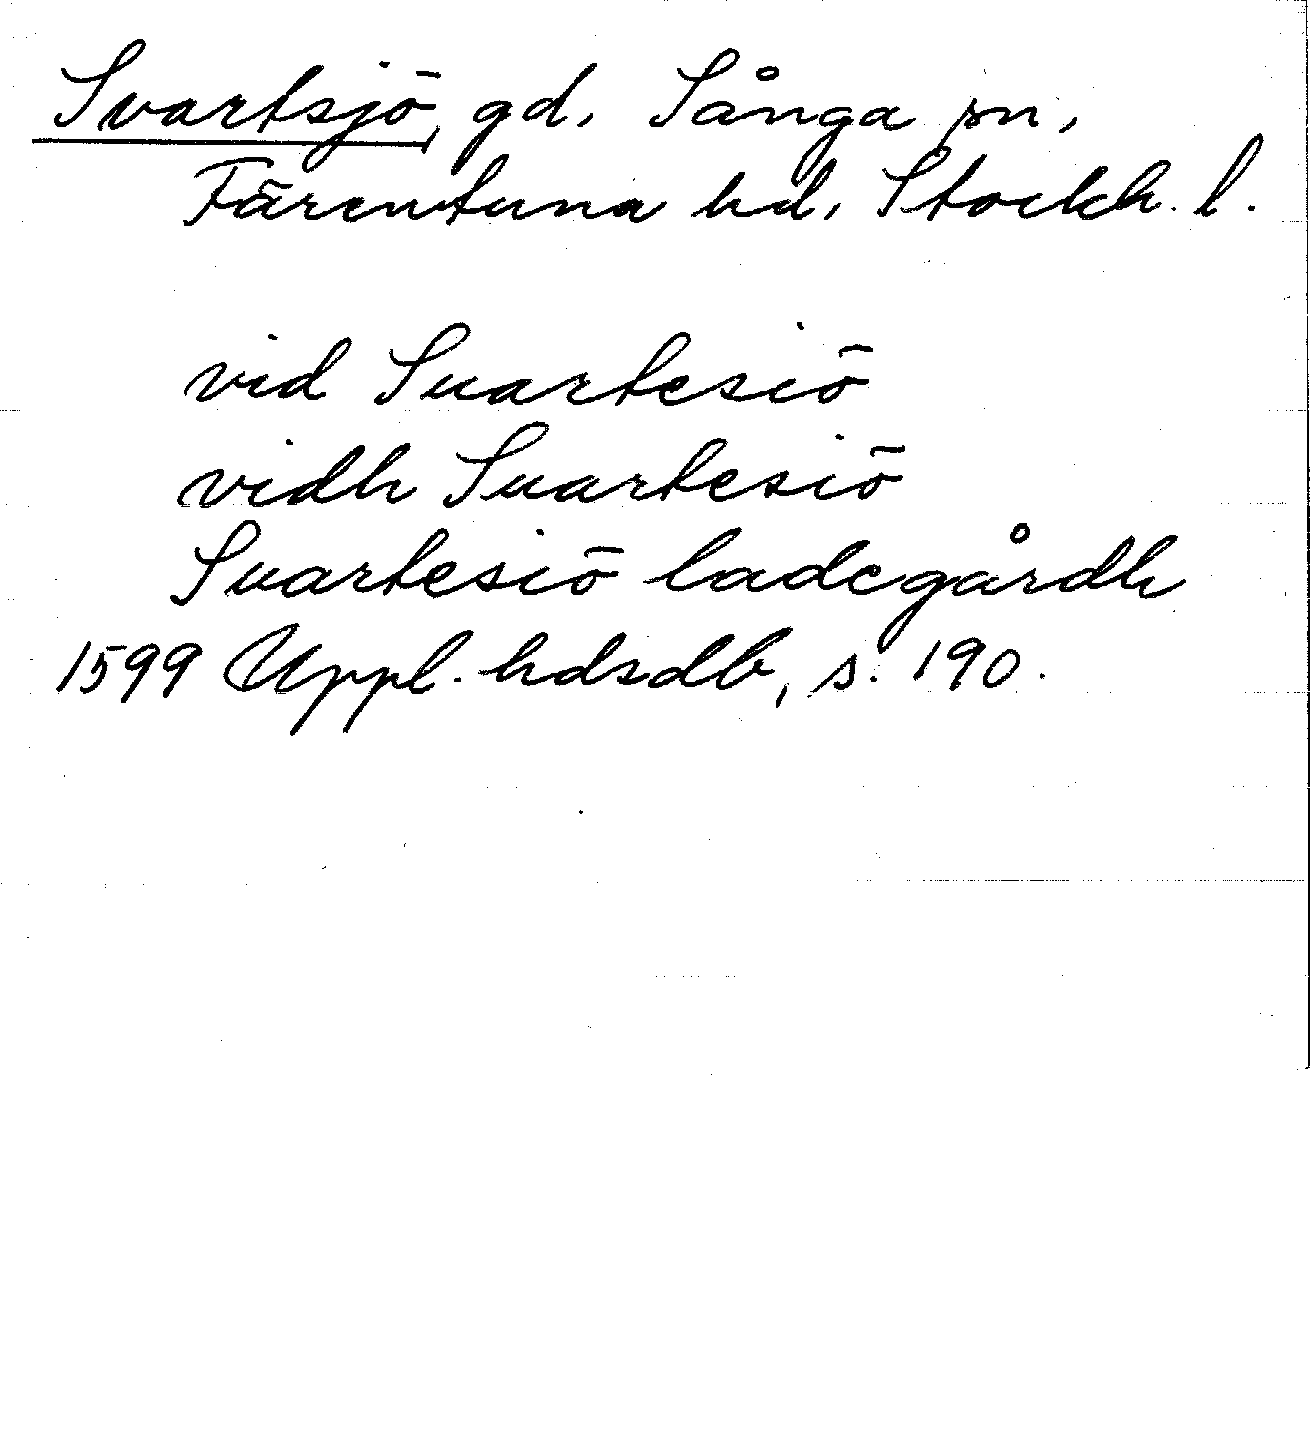 Svartsjö, gd, Sånga sn,
Färentuna hd, Stockh. l.
vid Suartesiö
vidh Suartesiö
Suartesiö ladegårdh
1599 Uppl. hdsdb, s. 190.